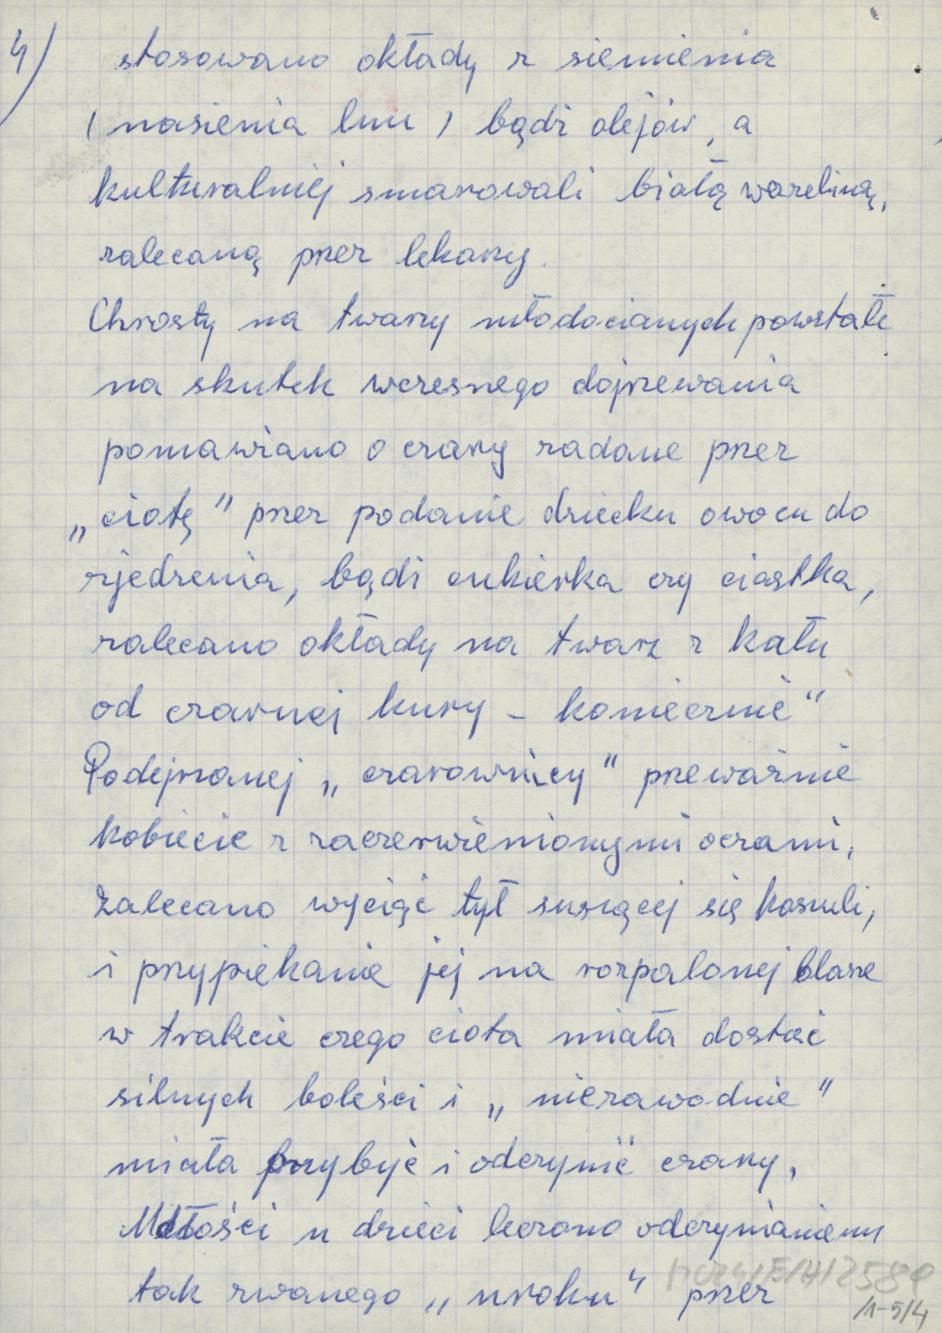 4)
stosowano okłady z siemienia
(nasienia lnu) bądź olejów, a
kulturalniej smarowali białą wazeliną,
zalecaną przez lekarzy.
Chrosty na twarzy młodocianych powstałe
na skutek wczesnego dojrzewania
pomawiano o czary zadane przez
„ciotę" przez podanie dziecku owocu do
zjedzenia, bądź cukierka czy ciastka,
zalecano okłady na twarz z kału
od czarnej kury – koniecznie"
Podejrzanej „czarownicy" przeważnie
kobiecie z zaczerwienionymi oczami,
zalecano wyciąć tył suszącej się koszuli,
i przypiekanie jej na rozpalonej blasze
w trakcie czego ciota miała dostać
silnych boleści i „niezawodnie"
miała przybyć i odczynić czary,
Mdłości u dzieci leczono odczynianiem
tak zwanego „uroku" przez
/1-5/4